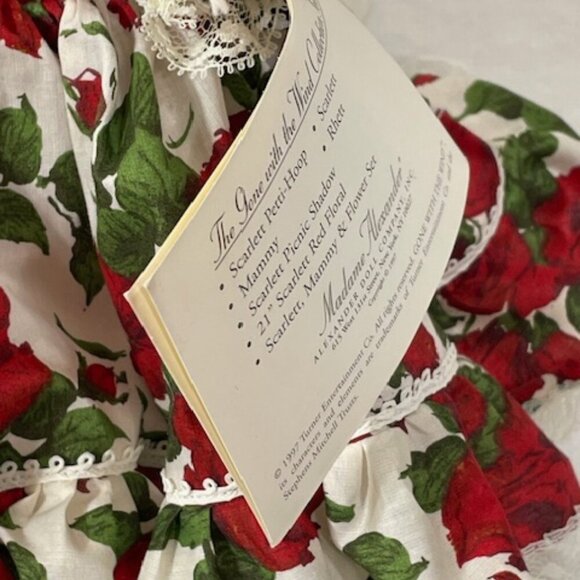 The Gone with the Wind Collection
• Scarlett Petti-Hoop • Scarlett
• Mammy • Rhett
• Scarlett Picnic Shadow
• 21" Scarlett Red Floral
• Scarlett, Mammy & Flower Set
Madame Alexander®
ALEXANDER DOLL COMPANY, INC.
615 West 131st Street, New York, NY 10027
Copyright © 1997
© 1997 Turner Entertainment Co. All rights reserved. GONE WITH THE WIND,
its characters and elements are trademarks of Turner Entertainment Co. and the
Stephens Mitchell Trusts.